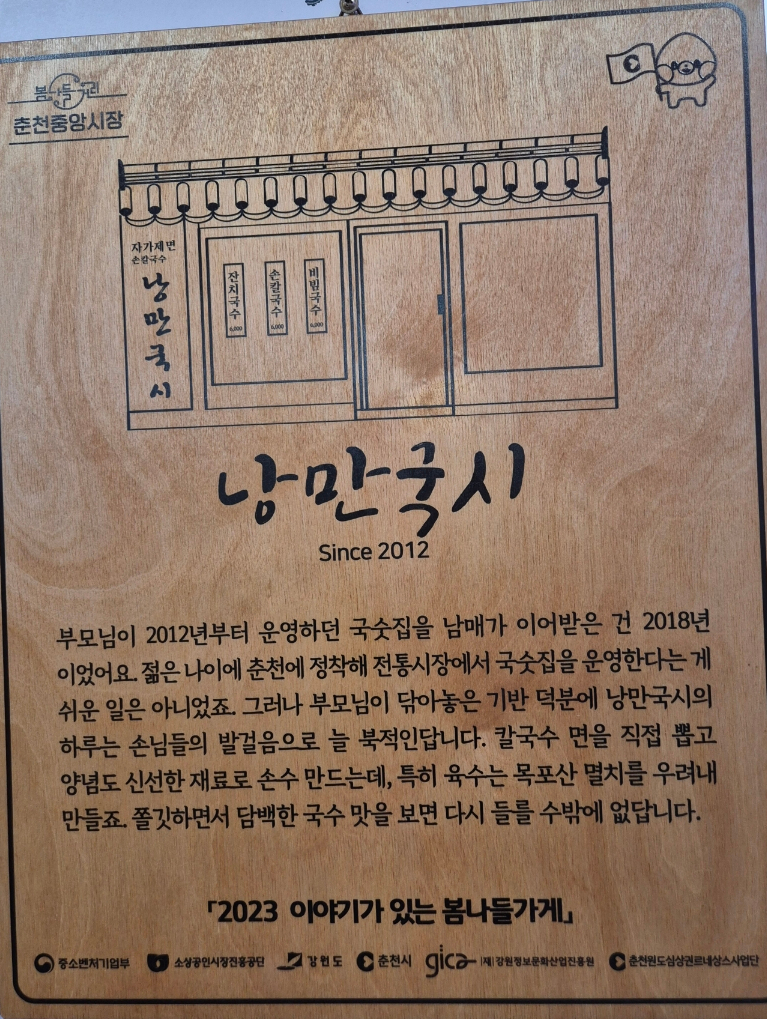 봄나들거리
춘천중앙시장
자가제면
손칼국수
낭만국시
잔치국수
6,000
손칼국수
6,000
비빔국수
6,000
낭만국시
Since 2012
부모님이 2012년부터 운영하던 국숫집을 남매가 이어받은 건 2018년
이었어요. 젊은 나이에 춘천에 정착해 전통시장에서 국숫집을 운영한다는 게
쉬운 일은 아니었죠. 그러나 부모님이 닦아놓은 기반 덕분에 낭만국시의
하루는 손님들의 발걸음으로 늘 북적인답니다. 칼국수 면을 직접 뽑고
양념도 신선한 재료로 손수 만드는데, 특히 육수는 목포산 멸치를 우려내
만들죠. 쫄깃하면서 담백한 국수 맛을 보면 다시 들를 수밖에 없답니다.
「2023 이야기가 있는 봄나들가게」
중소벤처기업부 소상공인시장진흥공단 강원도 춘천시 gica (재)강원정보문화산업진흥원 춘천원도심상권르네상스사업단